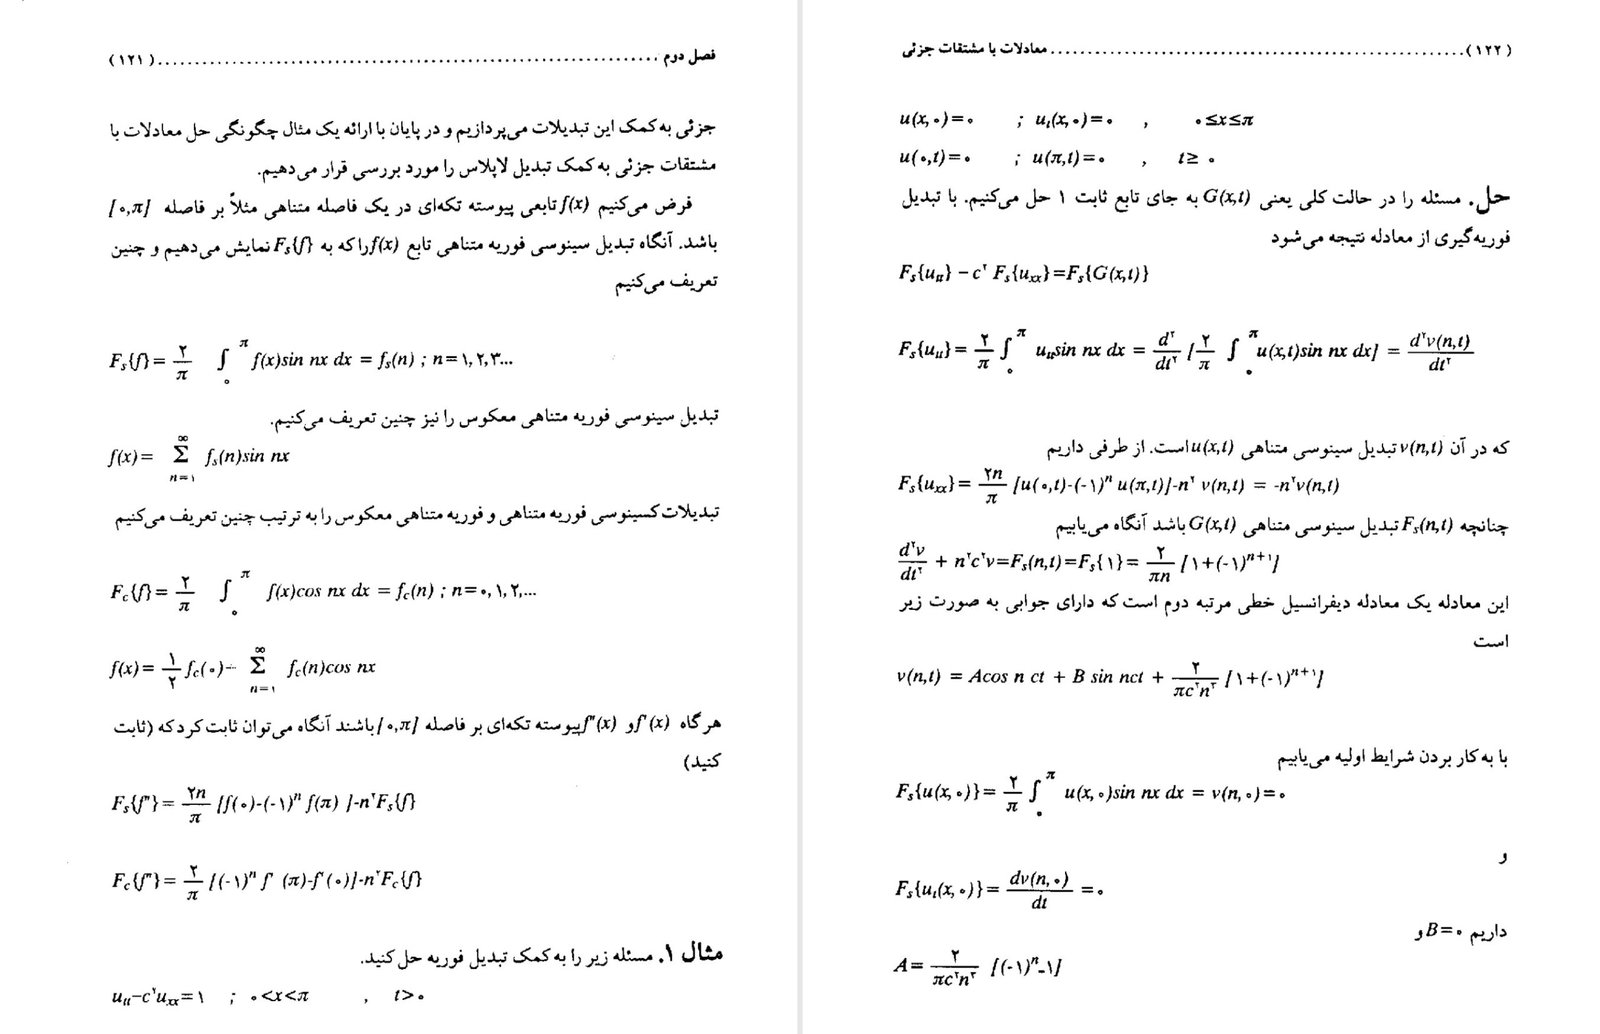 فصل دوم ........................................................................ (۱۲۱)
جزئی به کمک این تبدیلات می‌پردازیم و در پایان با ارائه یک مثال چگونگی حل معادلات با
مشتقات جزئی به کمک تبدیل لاپلاس را مورد بررسی قرار می‌دهیم.
فرض می‌کنیم f(x) تابعی پیوسته تکه‌ای در یک فاصله متناهی مثلاً بر فاصله [۰,π]
باشد. آنگاه تبدیل سینوسی فوریه متناهی تابع f(x) را که به Fₛ{f} نمایش می‌دهیم و چنین
تعریف می‌کنیم
Fₛ{f} = ۲/π ∫₀^π f(x)sin nx dx = fₛ(n) ; n=۱,۲,۳...
تبدیل سینوسی فوریه متناهی معکوس را نیز چنین تعریف می‌کنیم.
f(x) = Σ_{n=۱}^∞ fₛ(n)sin nx
تبدیلات کسینوسی فوریه متناهی و فوریه متناهی معکوس را به ترتیب چنین تعریف می‌کنیم
F_c{f} = ۲/π ∫₀^π f(x)cos nx dx = f_c(n) ; n=۰,۱,۲,...
f(x) = ۱/۲ f_c(۰)- Σ_{n=۱}^∞ f_c(n)cos nx
هرگاه f'(x) و f"(x) پیوسته تکه‌ای بر فاصله [۰,π] باشند آنگاه می‌توان ثابت کرد که (ثابت
کنید)
Fₛ{f"} = ۲n/π [f(۰)-(-۱)ⁿ f(π) ]-n²Fₛ{f}
F_c{f"} = ۲/π [(-۱)ⁿ f' (π)-f'(۰)]-n²F_c{f}
مثال ۱. مسئله زیر را به کمک تبدیل فوریه حل کنید.
u_tt-c²u_xx=۱ ; ۰<x<π , t>۰
(۱۲۲) ........................................................ معادلات با مشتقات جزئی
u(x,۰)=۰ ; u_t(x,۰)=۰ , ۰≤x≤π
u(۰,t)=۰ ; u(π,t)=۰ , t≥ ۰
حل. مسئله را در حالت کلی یعنی G(x,t) به جای تابع ثابت ۱ حل می‌کنیم. با تبدیل
فوریه‌گیری از معادله نتیجه می‌شود
Fₛ{u_tt} - c² Fₛ{u_xx}=Fₛ{G(x,t)}
Fₛ{u_tt} = ۲/π ∫₀^π u_tt sin nx dx = d²/dt² [۲/π ∫₀^π u(x,t)sin nx dx] = d²v(n,t)/dt²
که در آن v(n,t) تبدیل سینوسی متناهی u(x,t) است. از طرفی داریم
Fₛ{u_xx} = ۲n/π [u(۰,t)-(-۱)ⁿ u(π,t)]-n² v(n,t) = -n²v(n,t)
چنانچه Fₛ(n,t) تبدیل سینوسی متناهی G(x,t) باشد آنگاه می‌یابیم
d²v/dt² + n²c²v=Fₛ(n,t)=Fₛ{۱} = ۲/πn [۱+(-۱)ⁿ⁺¹]
این معادله یک معادله دیفرانسیل خطی مرتبه دوم است که دارای جوابی به صورت زیر
است
v(n,t) = Acos n ct + B sin nct + ۲/πc²n³ [۱+(-۱)ⁿ⁺¹]
با به کار بردن شرایط اولیه می‌یابیم
Fₛ{u(x,۰)} = ۲/π ∫₀^π u(x,۰)sin nx dx = v(n,۰)=۰
و
Fₛ{u_t(x,۰)} = dv(n,۰)/dt =۰
داریم B=۰ و
A = ۲/πc²n³ [(-۱)ⁿ-۱]